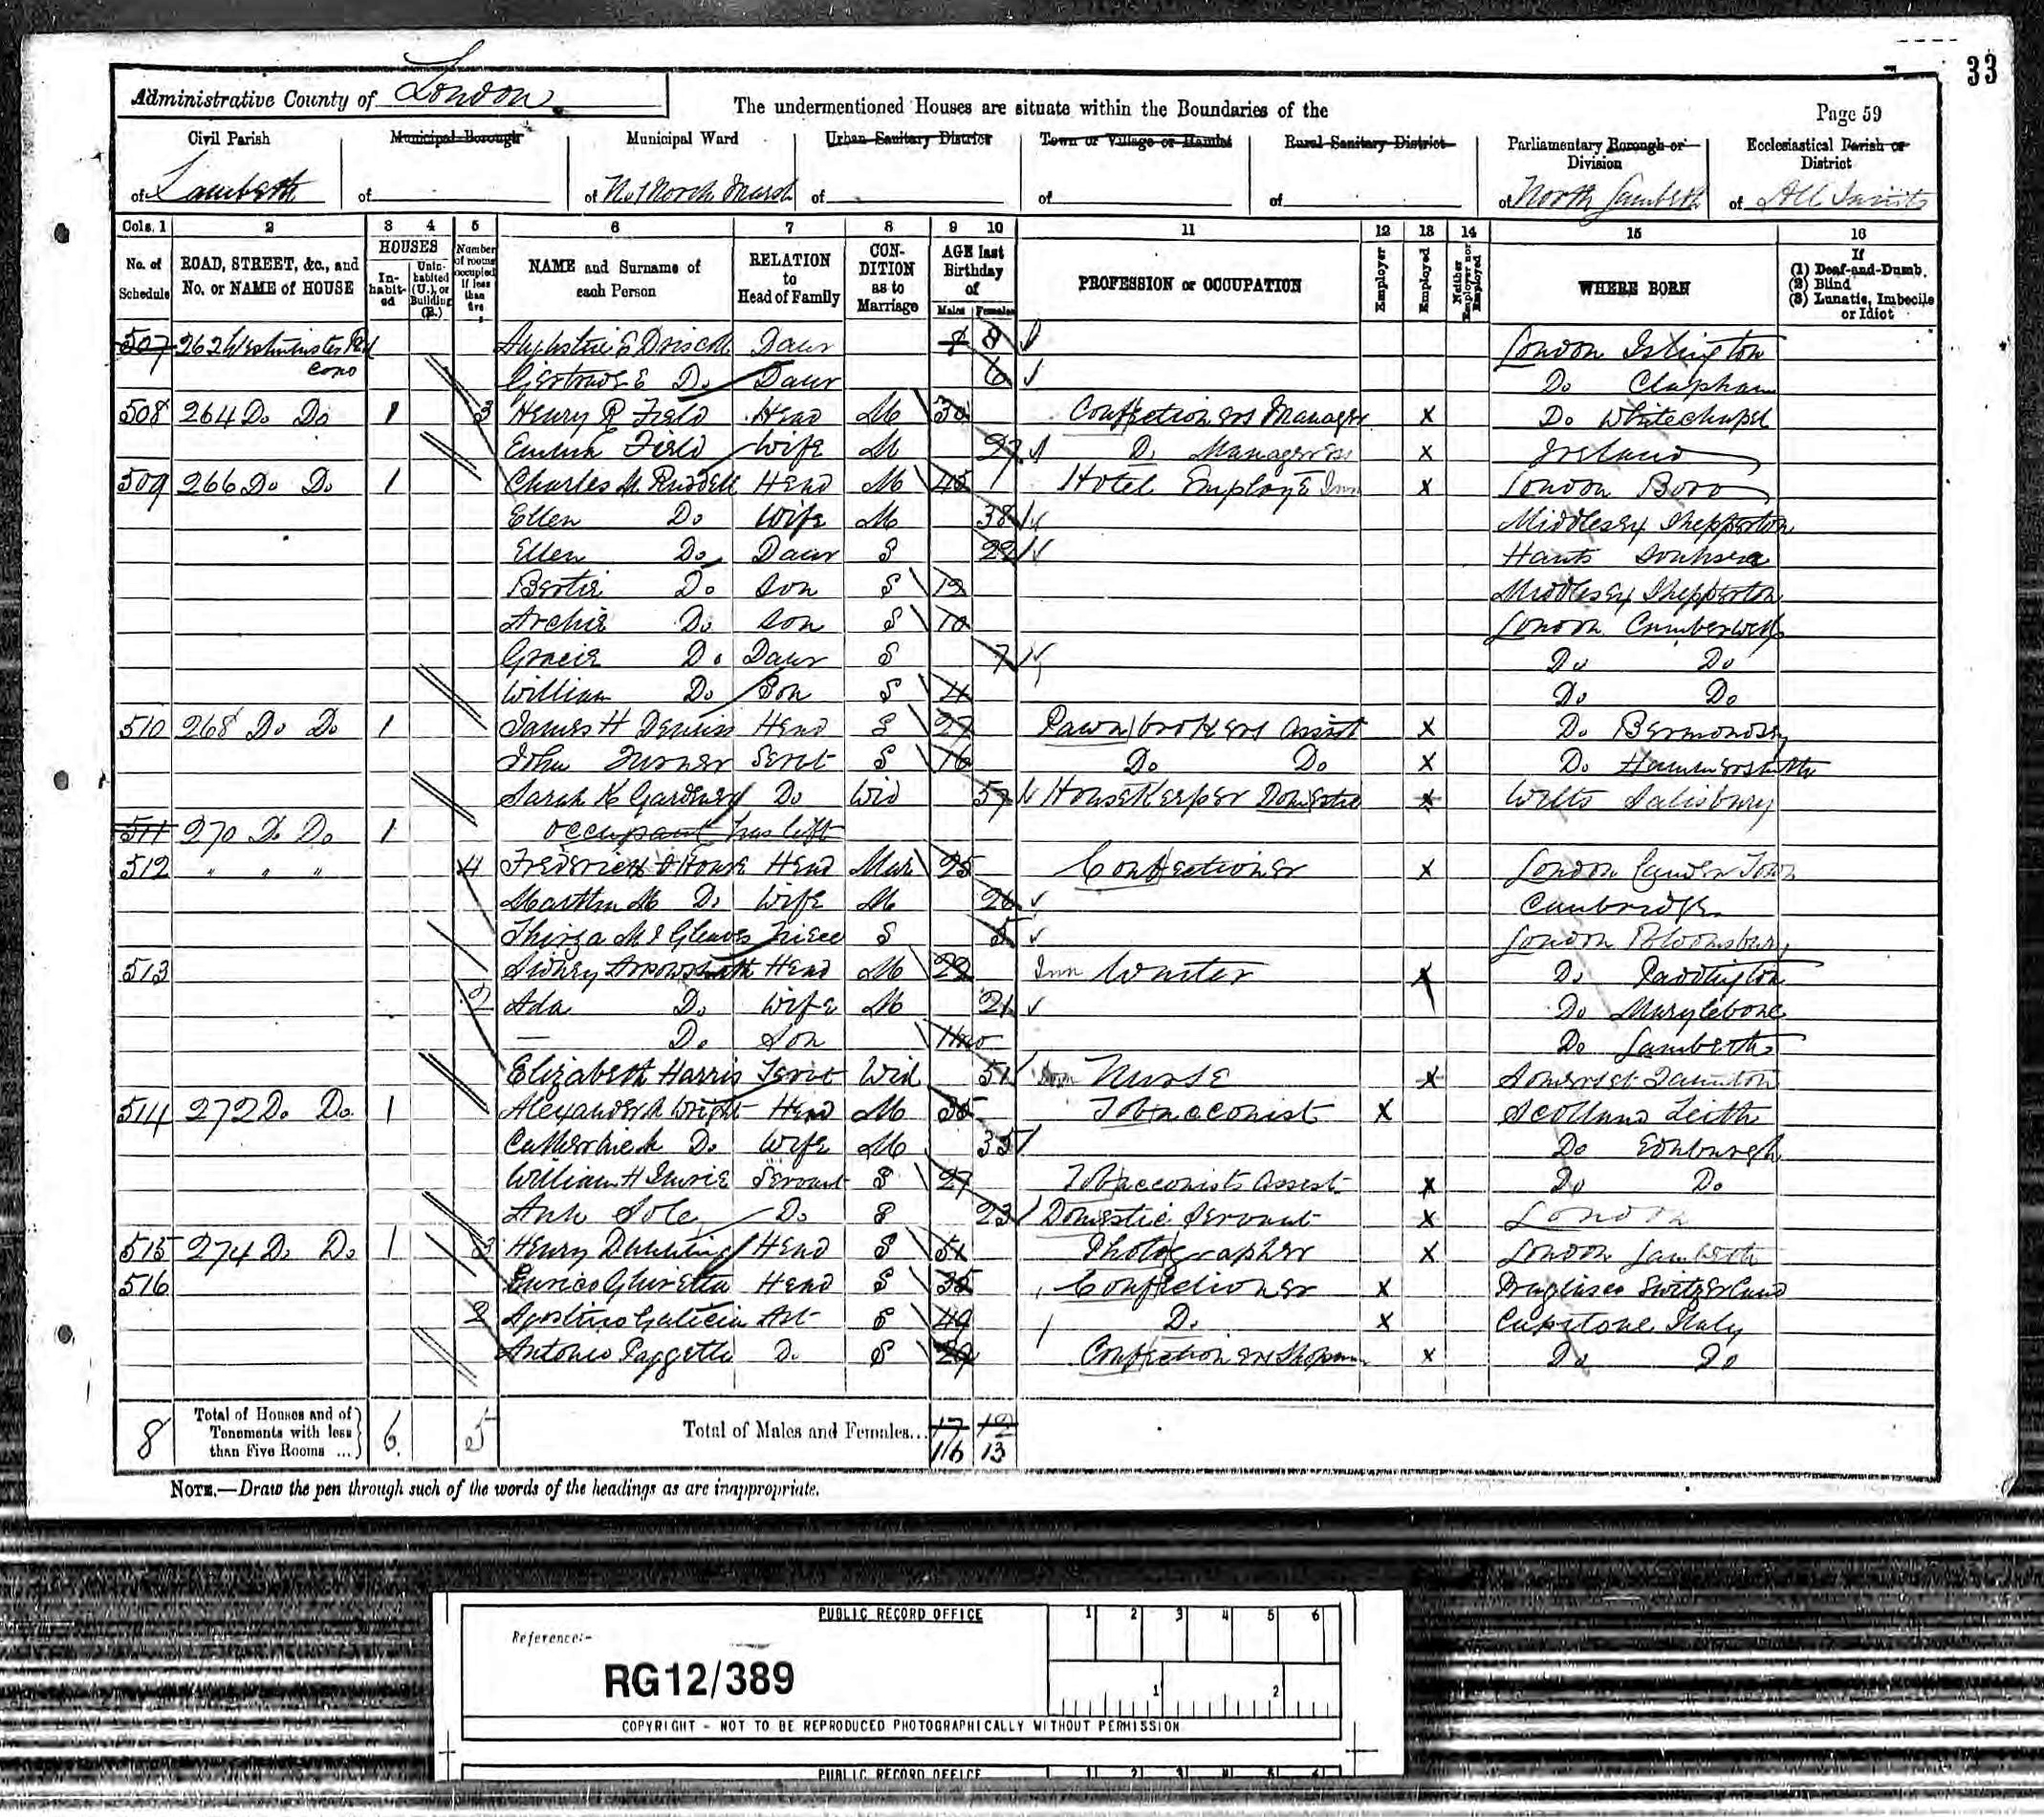 33
Administrative County of London
The undermentioned Houses are situate within the Boundaries of the
Page 59
Civil Parish
Municipal Borough
Municipal Ward
Urban Sanitary District
Town or Village or Hamlet
Rural Sanitary District
Parliamentary Borough or Division
Ecclesiastical Parish or District
of Lambeth of of No 1 North Marsh of of of of North Lambeth of All Saints
Cols. 1 2 3 4 5 6 7 8 9 10 11 12 13 14 15 16
No. of Schedule
ROAD, STREET, &c., and No. or NAME of HOUSE
HOUSES
In-habit-ed
Unin-habited (U.), or Building (B.)
Number of rooms occupied if less than five
NAME and Surname of each Person
RELATION to Head of Family
CON-DITION as to Marriage
AGE last Birthday of
Males Females
PROFESSION or OCCUPATION
Employer
Employed
Neither Employer nor Employed
WHERE BORN
If
(1) Deaf-and-Dumb.
(2) Blind
(3) Lunatic, Imbecile or Idiot
507 262 Westminster Rd E Driscoll Daur 8 London Islington
Cono
Gertrude E Do Daur 6 Do Clapham
508 264 Do Do 1 3 Henry R Field Head M 30 Confectioners Manager X Do Whitechapel
Field Wife M 27 Do Manageress X Ireland
509 266 Do Do 1 Charles M Head M 45 Hotel Employe Inn X London Boro
Ellen Do Wife M 38 Middlesex Shepperton
Ellen Do Daur S 22 Hants Southsea
Bertie Do Son S 12 Middlesex Shepperton
Archie Do Son S 10 London Camberwell
Gracie Do Daur S 7 Do Do
William Do Son S 4 Do Do
510 268 Do Do 1 James H Dennis Head S 27 Pawnbrokers Assist X Do Bermondsey
John Turner Servt S 16 Do Do X Do Hammersmith
Sarah K Gardener Do Wid 57 Housekeeper Domestic X Wilts Salisbury
511 270 Do Do 1 occupant has left
512 " " " 4 Frederick House Head Mar 25 Confectioner X London Camden Town
Martha M Do Wife M 26 Cambridge
Thirza M Gleaves Niece S 5 London Bloomsbury
513 Sidney Arrowsmith Head M 22 Inn Waiter X Do Paddington
2 Ada Do Wife M 21 Do Marylebone
— Do Son 1 mo Do Lambeth
Elizabeth Harris Servt Wid 51 Nurse X Somerset Taunton
514 272 Do Do 1 Alexander Wright Head M 35 Tobacconist X Scotland Leith
Do Wife M 35 Do Edinburgh
William H Servant S 27 Tobacconists Assist X Do Do
Ann Sole Do S 23 Domestic Servant X London
515 274 Do Do 1 3 Henry Head S 51 Photographer X London Lambeth
516 Enrico Head S 35 Confectioner X Switzerland
2 Agostino S 49 Do X Italy
Antonio Do S 29 Confectioners Shopman X Do Do
8 Total of Houses and of Tenements with less than Five Rooms ... 6 5
Total of Males and Females... 17 12
16 13
NOTE.—Draw the pen through such of the words of the headings as are inappropriate.
PUBLIC RECORD OFFICE
1 2 3 4 5 6
Reference:-
RG12/389
1 2
COPYRIGHT - NOT TO BE REPRODUCED PHOTOGRAPHICALLY WITHOUT PERMISSION
PUBLIC RECORD OFFICE
1 2 3 4 5 6